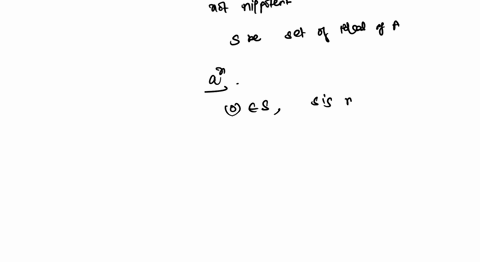 not nilpotent
S be set of ideal of A
aⁿ.
(0) ∈ S, S is n